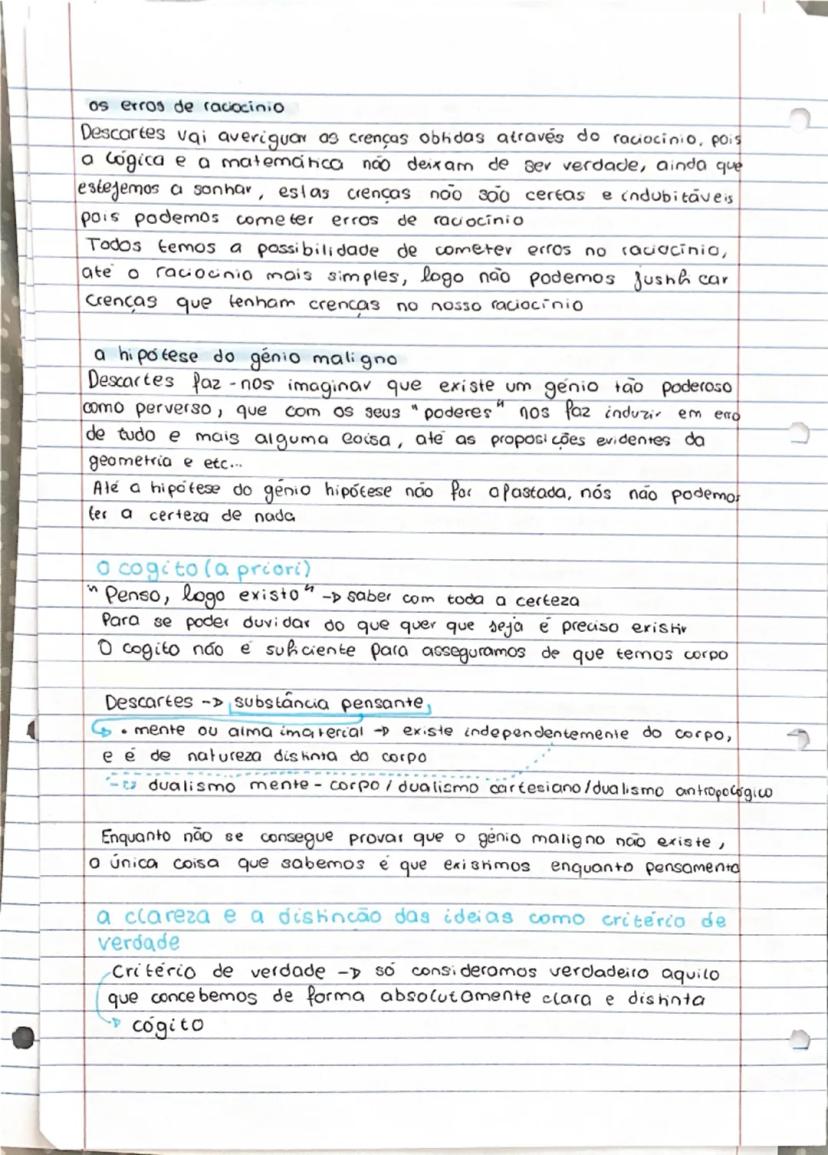 os erros de raciocínio
Descartes vai averiguar as crenças obtidas através do raciocínio, pois
a lógica e a matemática não deixam de ser verdade, ainda que
estejemos a sonhar, estas crenças não são certas e indubitáveis
pois podemos cometer erros de raciocínio
Todos temos a possibilidade de cometer erros no raciocínio,
até o raciocínio mais simples, logo não podemos justificar
crenças que tenham crenças no nosso raciocínio
a hipótese do génio maligno
Descartes faz-nos imaginar que existe um génio tão poderoso
como perverso, que com os seus "poderes" nos faz induzir em erro
de tudo e mais alguma coisa, até as proposições evidentes da
geometria e etc...
Até a hipótese do génio hipótese não for afastada, nós não podemos
ter a certeza de nada
o cogito (a priori)
"Penso, logo existo" -> saber com toda a certeza
Para se poder duvidar do que quer que seja é preciso existir
O cogito não é suficiente para asseguramos de que temos corpo
Descartes -> substância pensante,
• mente ou alma imaterial -> existe independentemente do corpo,
e é de natureza distinta do corpo
-> dualismo mente - corpo / dualismo cartesiano/dualismo antropológico
Enquanto não se consegue provar que o génio maligno não existe,
a única coisa que sabemos é que existimos enquanto pensamento
a clareza e a distincão das ideias como critério de
verdade
Critério de verdade -> só consideramos verdadeiro aquilo
que concebemos de forma absolutamente clara e distinta
-> cógito